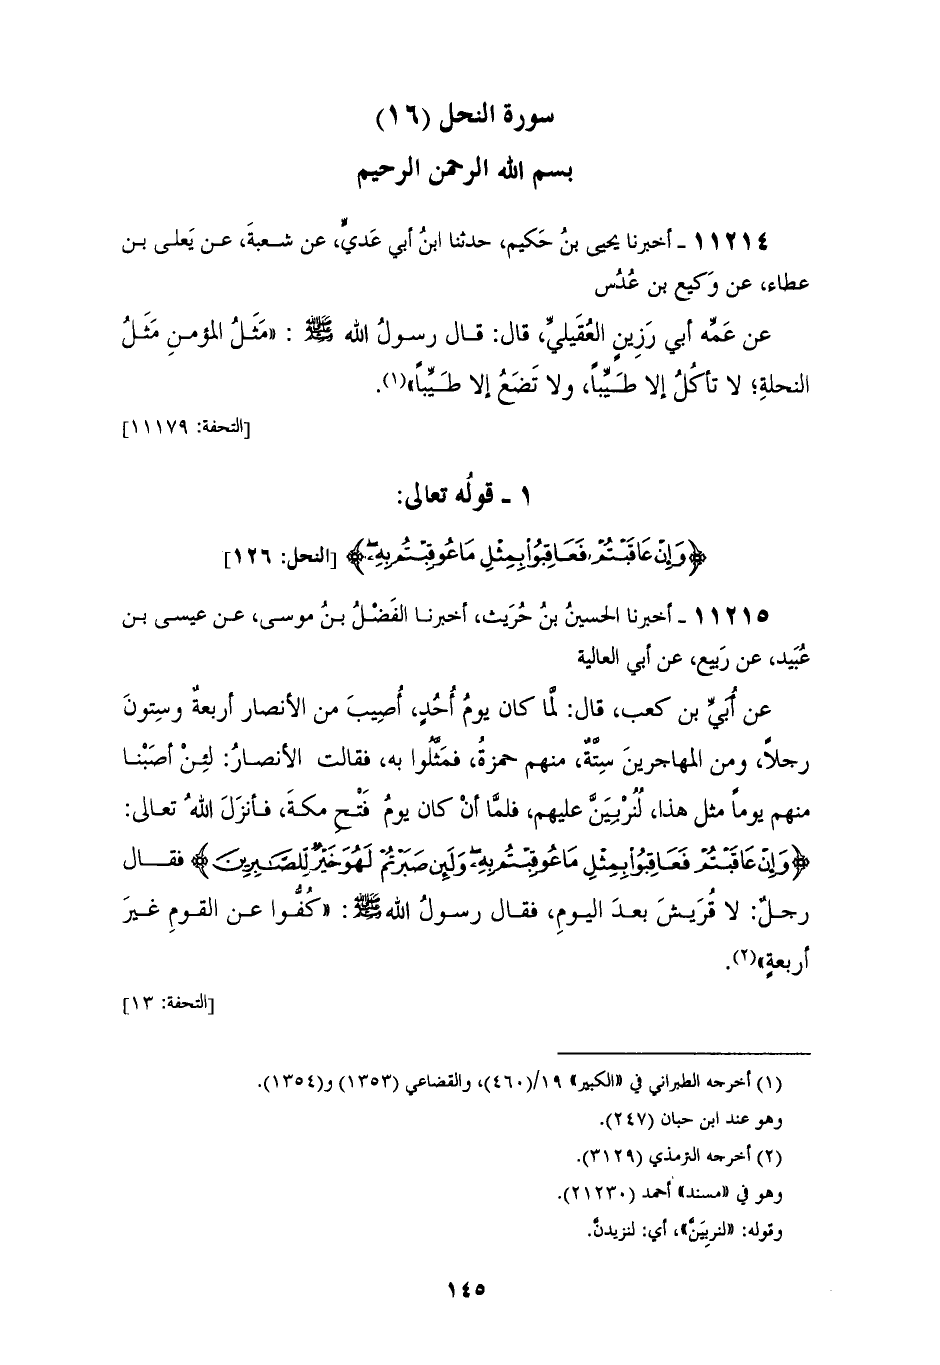 سورة النحل (١٦)
بسم الله الرحمن الرحيم
١١٢١٤ ـ أخبرنا يحيى بنُ حَكيم، حدثنا ابنُ أبي عَديٍّ، عن شعبةَ، عن يَعلى بن
عطاء، عن وَكيع بن عُدُس
عن عَمِّه أبي رَزينٍ العُقَيليِّ، قال: قال رسولُ الله ﷺ : «مَثَلُ المؤمنِ مَثَلُ
النحلةِ؛ لا تأكُلُ إلا طَيِّباً، ولا تَضَعُ إلا طَيِّباً»(١).
[التحفة: ١١١٧٩]
١ ـ قولُه تعالى:
﴿وَإِنْ عَاقَبْتُمْ فَعَاقِبُوا بِمِثْلِ مَا عُوقِبْتُم بِهِۦ﴾ [النحل: ١٢٦]
١١٢١٥ ـ أخبرنا الحسينُ بنُ حُرَيث، أخبرنا الفَضْلُ بنُ موسى، عن عيسى بن
عُبَيد، عن رَبيع، عن أبي العالية
عن أُبَيِّ بن كعب، قال: لَّا كان يومُ أُحُدٍ، أُصِيبَ من الأنصار أربعةٌ وستونَ
رجلاً، ومن المهاجرينَ سِتَّةٌ، منهم حمزةُ، فمَثَّلُوا به، فقالت الأنصارُ: لئِنْ أصَبْنا
منهم يوماً مثل هذا، لَنُرْبِيَنَّ عليهم، فلمَّا أنْ كان يومُ فَتْحِ مكةَ، فأنزَلَ اللهُ تعالى:
﴿وَإِنْ عَاقَبْتُمْ فَعَاقِبُوا بِمِثْلِ مَا عُوقِبْتُم بِهِۦ وَلَئِن صَبَرْتُمْ لَهُوَ خَيْرٌ لِّلصَّٰبِرِينَ﴾ فقال
رجلٌ: لا قُرَيشَ بعدَ اليومِ، فقال رسولُ الله ﷺ : «كُفُّوا عن القومِ غيرَ
أربعةٍ»(٢).
[التحفة: ١٣]
(١) أخرجه الطبراني في «الكبير» ١٩/(٤٦٠)، والقضاعي (١٣٥٣) و(١٣٥٤).
وهو عند ابن حبان (٢٤٧).
(٢) أخرجه الترمذي (٣١٢٩).
وهو في «مسند» أحمد (٢١٢٣٠).
وقوله: «لنربِيَنَّ»، أي: لنزيدنَّ.
١٤٥